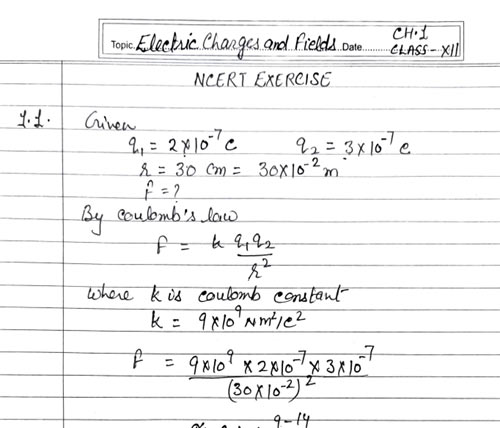 CH.1
Topic. Electric Charges and Fields Date........... CLASS-XII
NCERT EXERCISE
1.1. Given
q₁ = 2×10⁻⁷ C q₂ = 3×10⁻⁷ C
r = 30 cm = 30×10⁻² m
F = ?
By coulomb's law
F = k q₁q₂ / r²
where k is coulomb constant
k = 9×10⁹ Nm²/C²
F = 9×10⁹ × 2×10⁻⁷ × 3×10⁻⁷ / (30×10⁻²)²
9-14